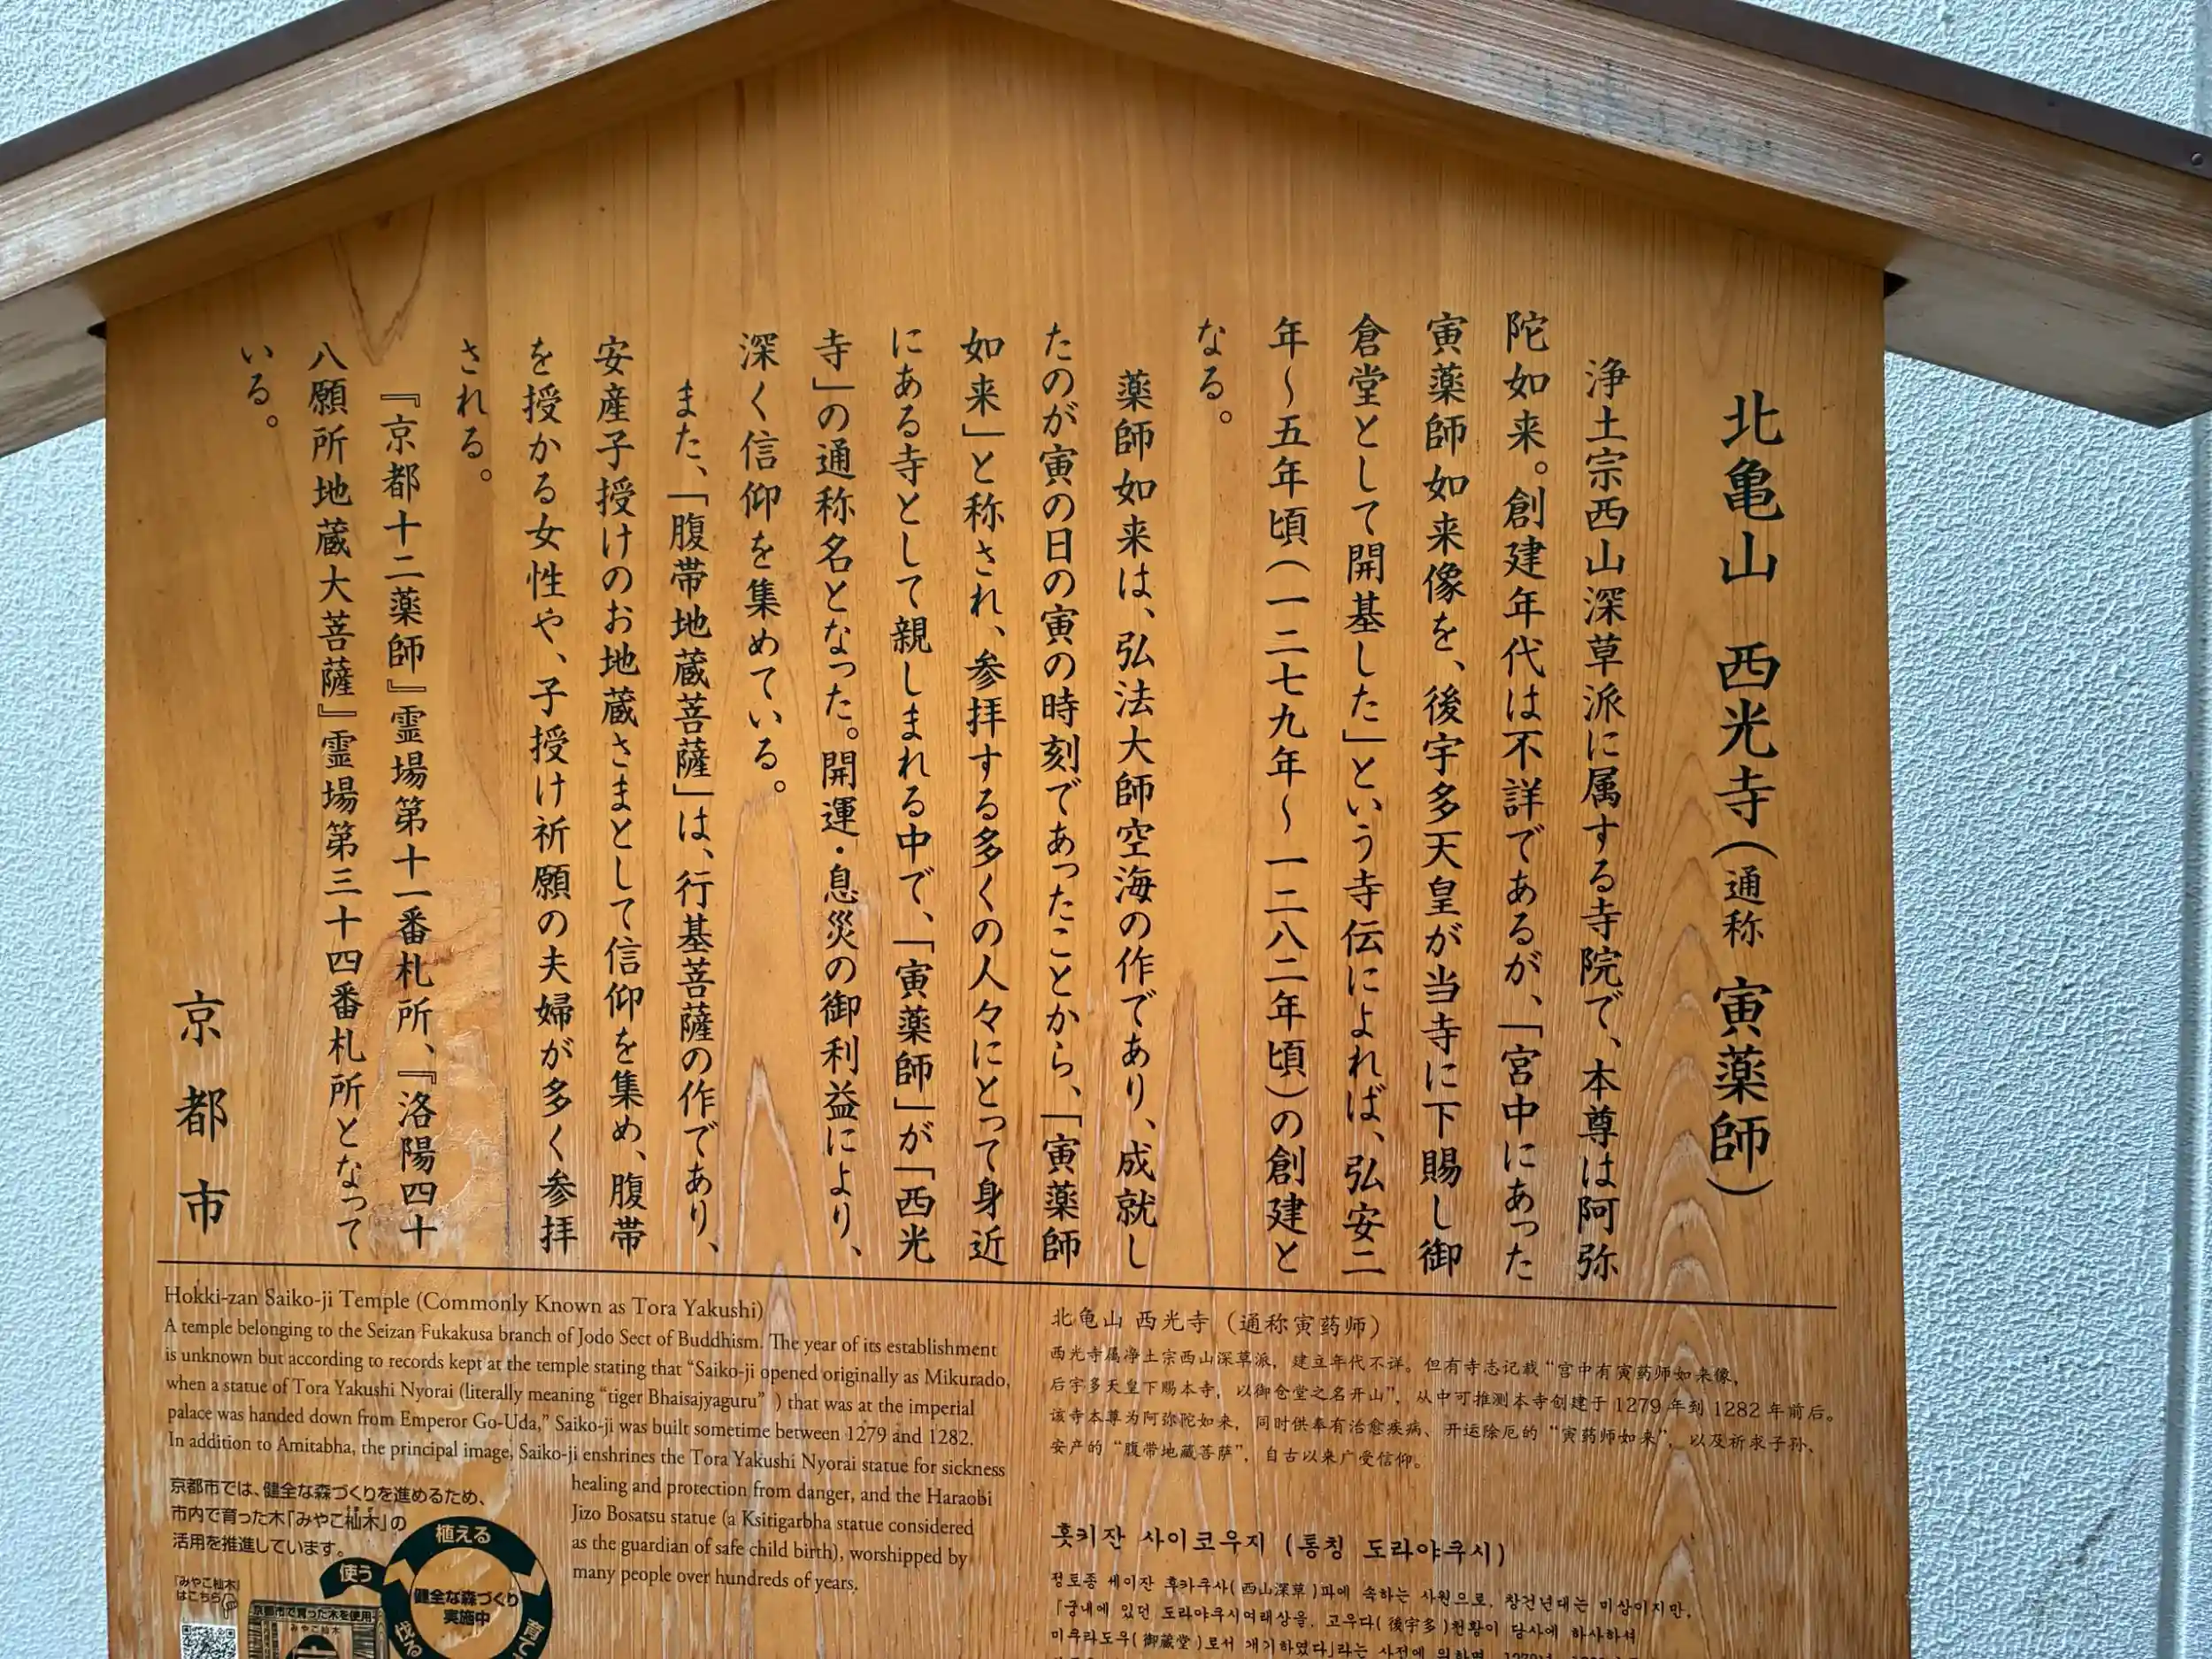 北亀山 西光寺(通称 寅薬師)
浄土宗西山深草派に属する寺院で、本尊は阿弥
陀如来。創建年代は不詳であるが、「宮中にあった
寅薬師如来像を、後宇多天皇が当寺に下賜し御
倉堂として開基した」という寺伝によれば、弘安二
年〜五年頃(一二七九年〜一二八二年頃)の創建と
なる。
薬師如来は、弘法大師空海の作であり、成就し
たのが寅の日の寅の時刻であったことから、「寅薬師
如来」と称され、参拝する多くの人々にとって身近
にある寺として親しまれる中で、「寅薬師」が「西光
寺」の通称名となった。開運・息災の御利益により、
深く信仰を集めている。
また、「腹帯地蔵菩薩」は、行基菩薩の作であり、
安産子授けのお地蔵さまとして信仰を集め、腹帯
を授かる女性や、子授け祈願の夫婦が多く参拝
される。
『京都十二薬師』霊場第十一番札所、『洛陽四十
八願所地蔵大菩薩』霊場第三十四番札所となって
いる。
京都市
Hokki-zan Saiko-ji Temple (Commonly Known as Tora Yakushi)
A temple belonging to the Seizan Fukakusa branch of Jodo Sect of Buddhism. The year of its establishment
is unknown but according to records kept at the temple stating that “Saiko-ji opened originally as Mikurado,
when a statue of Tora Yakushi Nyorai (literally meaning “tiger Bhaisajyaguru” ) that was at the imperial
palace was handed down from Emperor Go-Uda,” Saiko-ji was built sometime between 1279 and 1282.
In addition to Amitabha, the principal image, Saiko-ji enshrines the Tora Yakushi Nyorai statue for sickness
healing and protection from danger, and the Haraobi
Jizo Bosatsu statue (a Ksitigarbha statue considered
as the guardian of safe child birth), worshipped by
many people over hundreds of years.
京都市では、健全な森づくりを進めるため、
市内で育った木「みやこ杣木」の
活用を推進しています。
『みやこ杣木』
はこちら
京都市で育った木を使用
みやこ杣木
植える
使う
健全な森づくり
実施中
伐る
育て
北龟山 西光寺（通称寅药师）
西光寺属净土宗西山深草派，建立年代不详。但有寺志记载“宫中有寅药师如来像，
后宇多天皇下赐本寺，以御仓堂之名开山”，从中可推测本寺创建于1279年到1282年前后。
该寺本尊为阿弥陀如来，同时供奉有治愈疾病、开运除厄的“寅药师如来”，以及祈求子孙、
安产的“腹带地藏菩萨”，自古以来广受信仰。
홋키잔 사이코우지 (통칭 도라야쿠시)
정토종 세이잔 후카쿠사(西山深草)파에 속하는 사원으로, 창건년대는 미상이지만,
「궁내에 있던 도라야쿠시여래상을, 고우다(後宇多)천황이 당사에 하사하셔
미쿠라도우(御蔵堂)로서 개기하였다」라는 사전에 의하면,